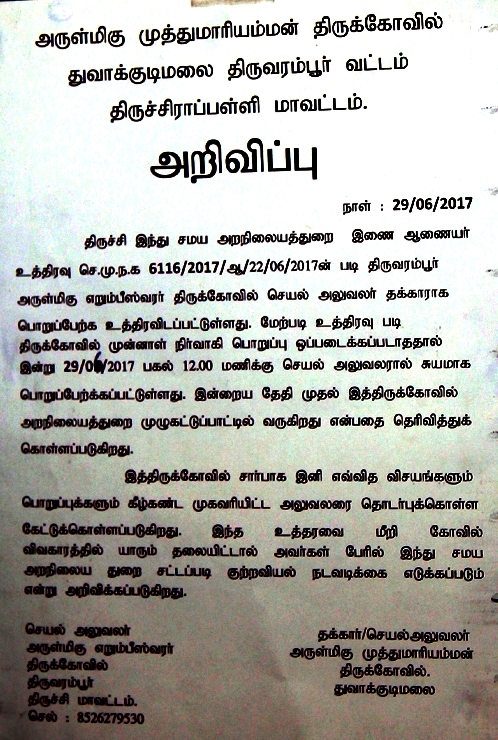 அருள்மிகு முத்துமாரியம்மன் திருக்கோவில்
துவாக்குடிமலை திருவரம்பூர் வட்டம்
திருச்சிராப்பள்ளி மாவட்டம்.
அறிவிப்பு
நாள் : 29/06/2017
திருச்சி இந்து சமய அறநிலையத்துறை இணை ஆணையர்
உத்திரவு செ.மு.ந.க 6116/2017/ஆ/22/06/2017ன் படி திருவரம்பூர்
அருள்மிகு எறும்பீஸ்வரர் திருக்கோவில் செயல் அலுவலர் தக்காராக
பொறுப்பேற்க உத்திரவிடப்பட்டுள்ளது. மேற்படி உத்திரவு படி
திருக்கோவில் முன்னாள் நிர்வாகி பொறுப்பு ஒப்படைக்கப்படாததால்
இன்று 29/06/2017 பகல் 12.00 மணிக்கு செயல் அலுவலரால் சுயமாக
பொறுப்பேற்கப்பட்டுள்ளது. இன்றைய தேதி முதல் இத்திருக்கோவில்
அறநிலையத்துறை முழுகட்டுப்பாட்டில் வருகிறது என்பதை தெரிவித்துக்
கொள்ளப்படுகிறது.
இத்திருக்கோவில் சார்பாக இனி எவ்வித விசயங்களும்
பொறுப்புக்களும் கீழ்கண்ட முகவரியிட்ட அலுவலரை தொடர்புக்கொள்ள
கேட்டுக்கொள்ளப்படுகிறது. இந்த உத்தரவை மீறி கோவில்
விவகாரத்தில் யாரும் தலையிட்டால் அவர்கள் பேரில் இந்து சமய
அறநிலைய துறை சட்டப்படி குற்றவியல் நடவடிக்கை எடுக்கப்படும்
என்று அறிவிக்கப்படுகிறது.
செயல் அலுவலர்
அருள்மிகு எறும்பீஸ்வரர்
திருக்கோவில்
திருவரம்பூர்
திருச்சி மாவட்டம்.
செல் : 8526279530
தக்கார்/செயல்அலுவலர்
அருள்மிகு முத்துமாரியம்மன்
திருக்கோவில்.
துவாக்குடிமலை